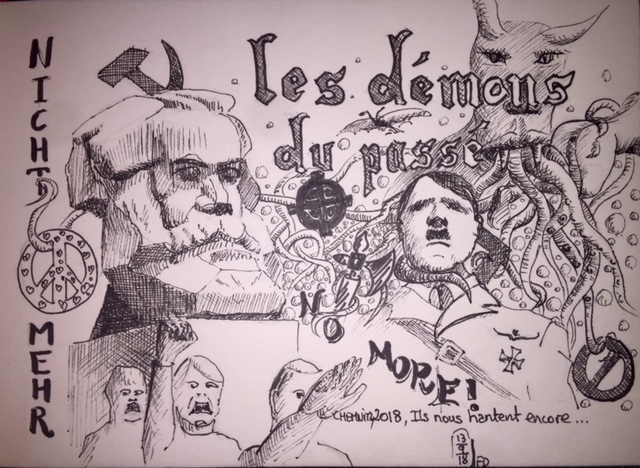 NICHT MEHR
les démons
du passé
NO MORE!
CHEMNITZ, 2018, Ils nous hantent encore ...
13
9
18